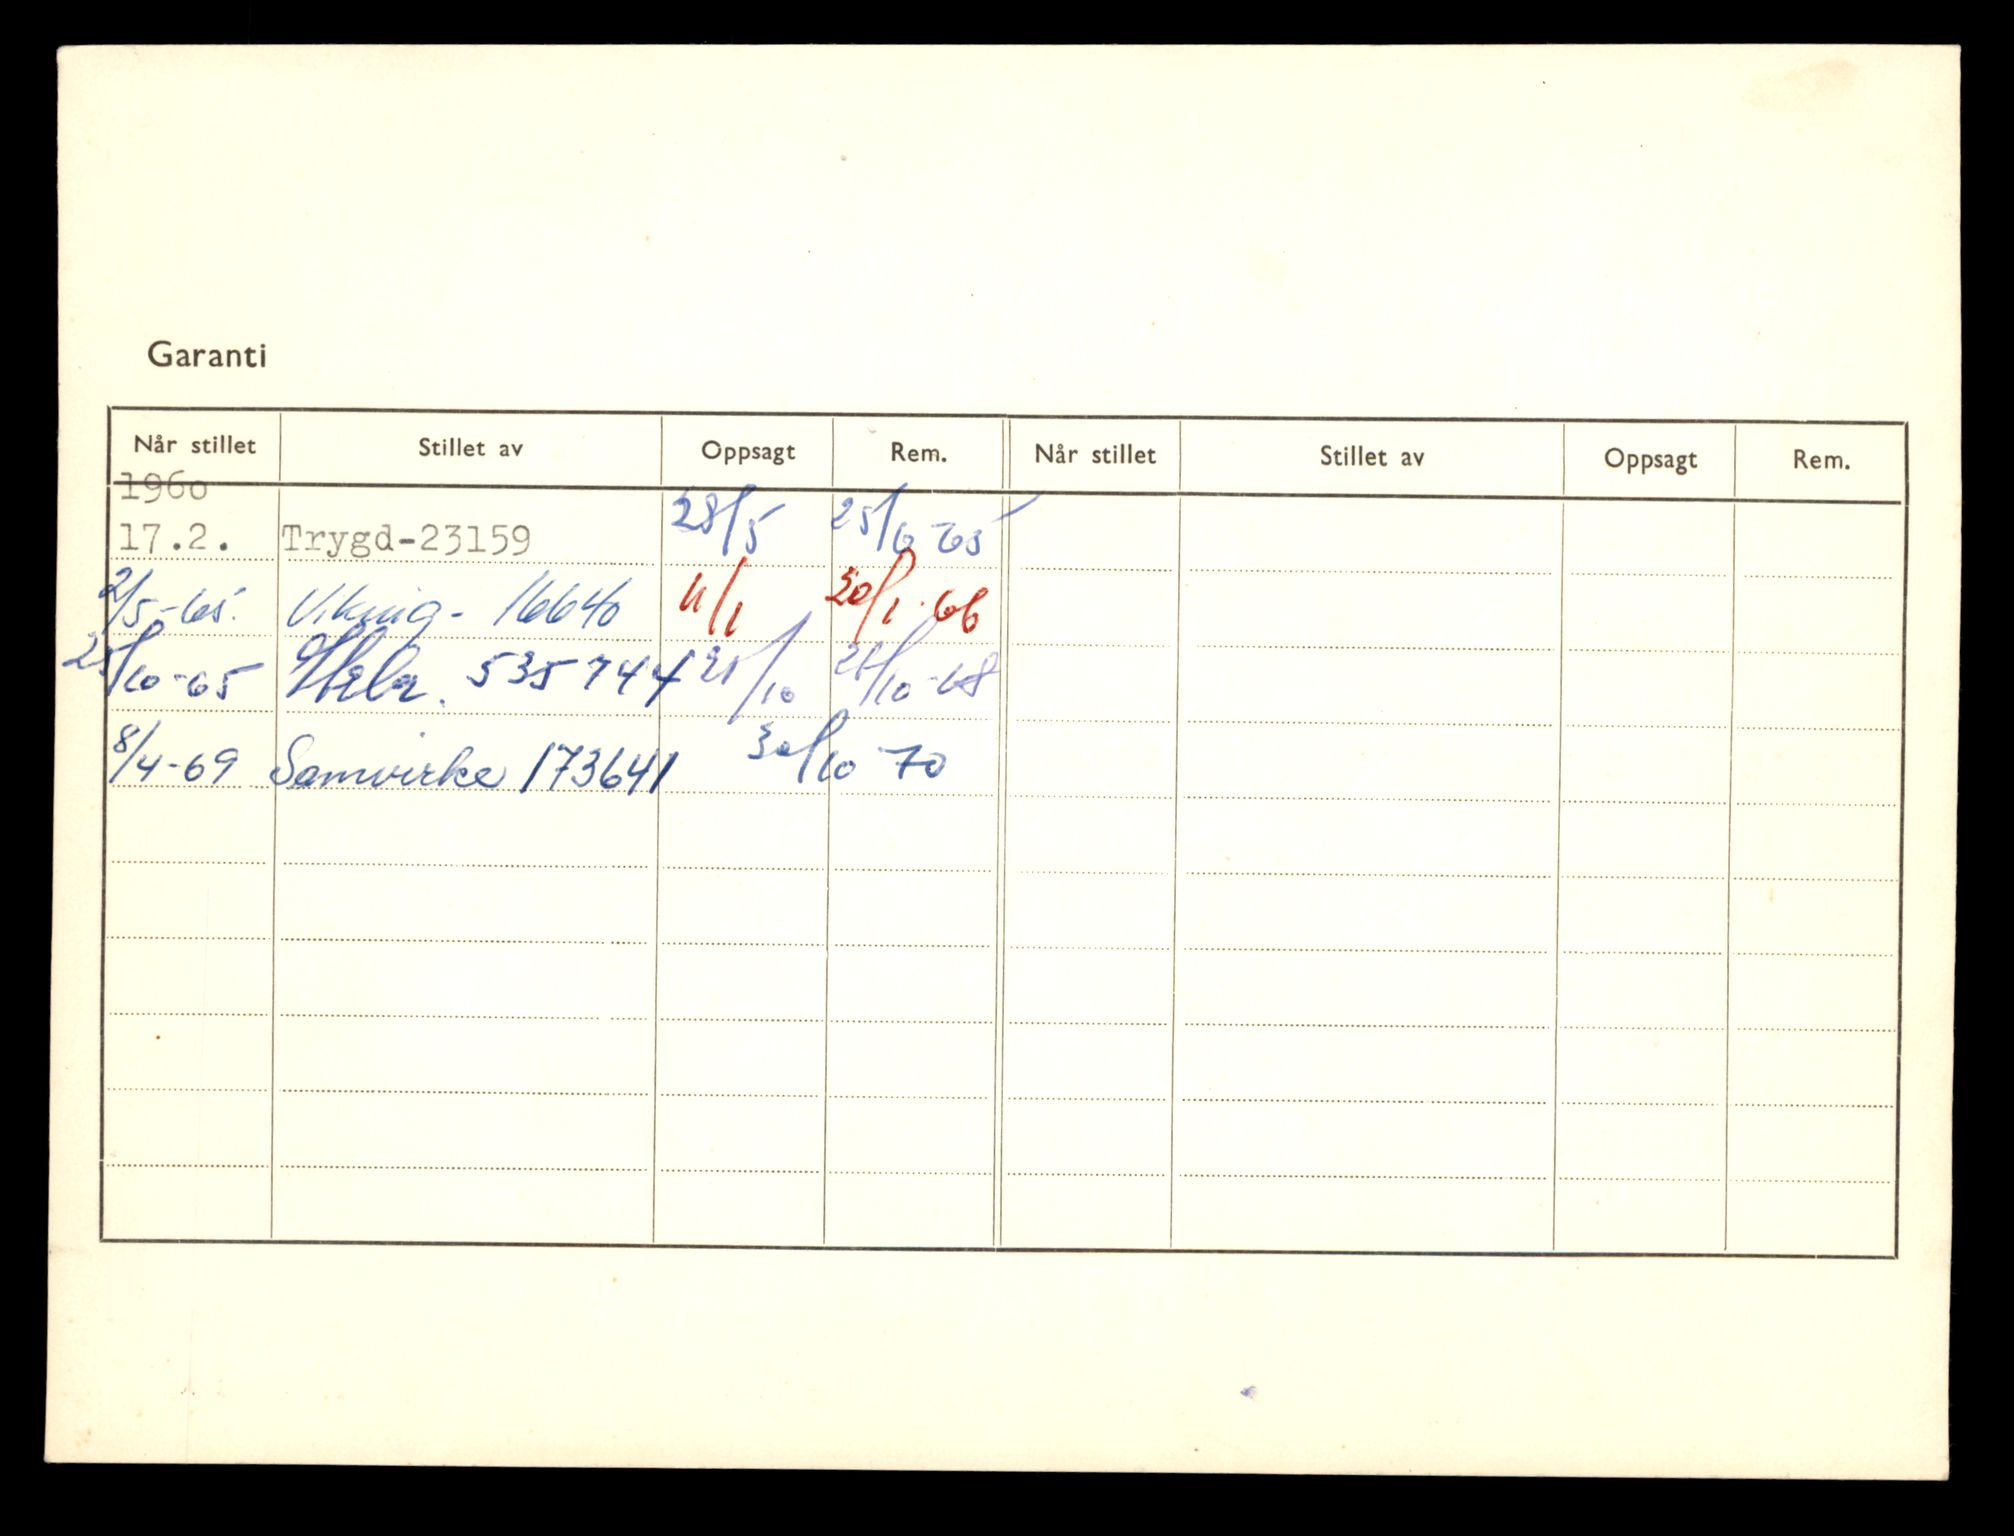 Garanti
Når stillet Stillet av Oppsagt Rem. Når stillet Stillet av Oppsagt Rem.
1960
17.2. Trygd-23159 28/5 25/6-65
2/5-65. Viking- 16640 11/1 20/1-66
25/10-65 535744 21/10 21/10-68
8/4-69 Samvirke 173641 30/10 70